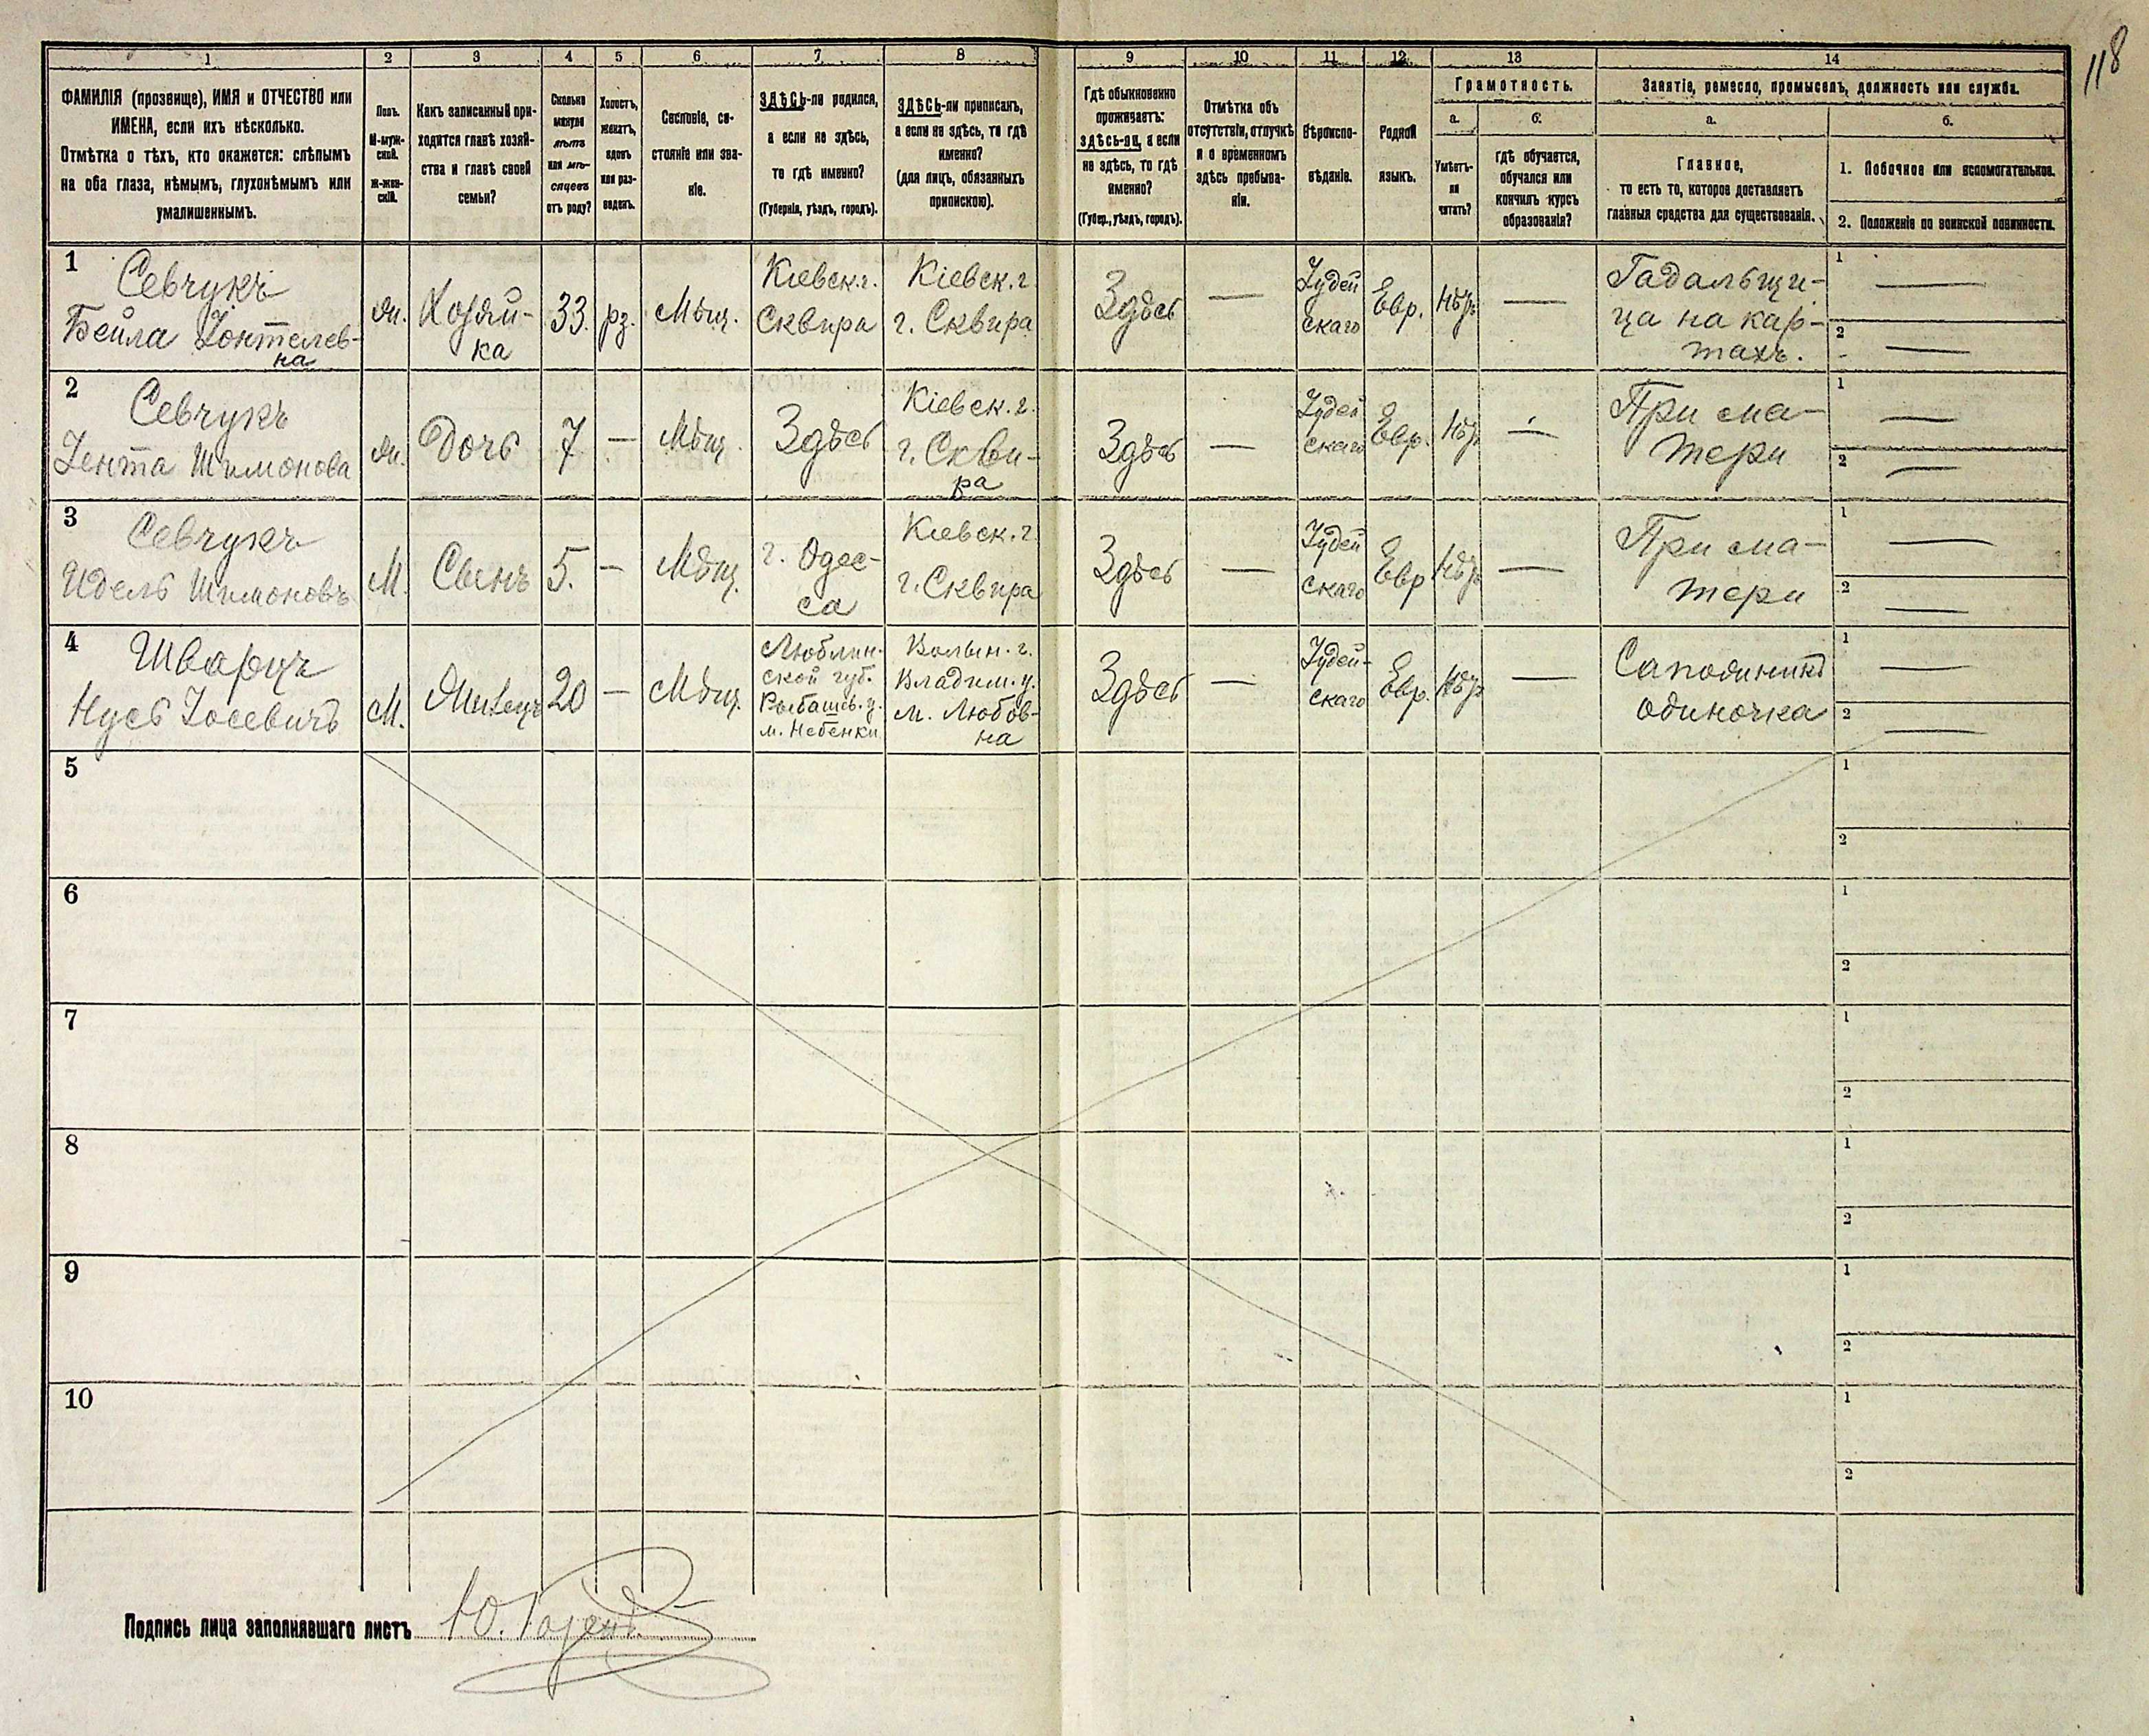 118
1 2 3 4 5 6 7 8 9 10 11 12 13 14
ФАМИЛІЯ (прозвище), ИМЯ и ОТЧЕСТВО или
ИМЕНА, если ихъ нѣсколько.
Отмѣтка о тѣхъ, кто окажется: слѣпымъ
на оба глаза, нѣмымъ, глухонѣмымъ или
умалишеннымъ.
Полъ.
М-муж-
ской.
Ж-жен-
скій.
Какъ записанный при-
ходится главѣ хозяй-
ства и главѣ своей
семьи?
Сколько
минуло
лѣтъ
или мѣ-
сяцевъ
отъ роду?
Холостъ,
женатъ,
вдовъ
или раз-
веденъ.
Сословіе, со-
стояніе или зва-
ніе.
ЗДѢСЬ-ли родился,
а если не здѣсь,
то гдѣ именно?
(Губернія, уѣздъ, городъ).
ЗДѢСЬ-ли приписанъ,
а если не здѣсь, то гдѣ
именно?
(для лицъ, обязанныхъ
припискою).
Гдѣ обыкновенно
проживаетъ:
здѣсь-ли, а если
не здѣсь, то гдѣ
именно?
(Губер., уѣздъ, городъ).
Отмѣтка объ
отсутствіи, отлучкѣ
и о временномъ
здѣсь пребыва-
ніи.
Вѣроиспо-
вѣданіе.
Родной
языкъ.
Грамотность.
а.
Умѣетъ-
ли
читать?
б.
гдѣ обучается,
обучался или
кончилъ курсъ
образованія?
Занятіе, ремесло, промыселъ, должность или служба.
а.
Главное,
то есть то, которое доставляетъ
главныя средства для существованія.
б.
1. Побочное или вспомогательное.
2. Положеніе по воинской повинности.
1
Севчукъ
Бейла Іонтелев-
на
Ж.
Хозяй-
ка
33.
рз.
Мѣщ.
Кіевск. г.
Сквира
Кіевск. г.
г. Сквира
Здѣсь
—
Іудей
скаго
Евр.
Нѣтъ
—
Гадальщи-
ца на кар-
тахъ.
1 —
2 —
2
Севчукъ
Шимонова
Ж.
Дочь
7
—
Мѣщ.
Здѣсь
Кіевск. г.
г. Скви-
ра
Здѣсь
—
Іудей
скаго
Евр.
Нѣтъ
—
При ма-
тери
1 —
2 —
3
Севчукъ
Идель Шимоновъ
М.
Сынъ
5.
—
Мѣщ.
г. Одес-
са
Кіевск. г.
г. Сквира
Здѣсь
—
Іудей
скаго
Евр
Нѣтъ
—
При ма-
тери
1 —
2 —
4
Шварцъ
Нусь Іосевичъ
М.
Жилецъ
20
—
Мѣщ.
Люблин-
ской губ.
м.
Волын. г.
Владим. у.
м. Любов-
на
Здѣсь
—
Іудей-
скаго
Евр.
Нѣтъ
—
Сапожникъ
одиночка
1 —
2 —
5
1
2
6
1
2
7
1
2
8
1
2
9
1
2
10
1
2
Подпись лица заполнявшаго листъ